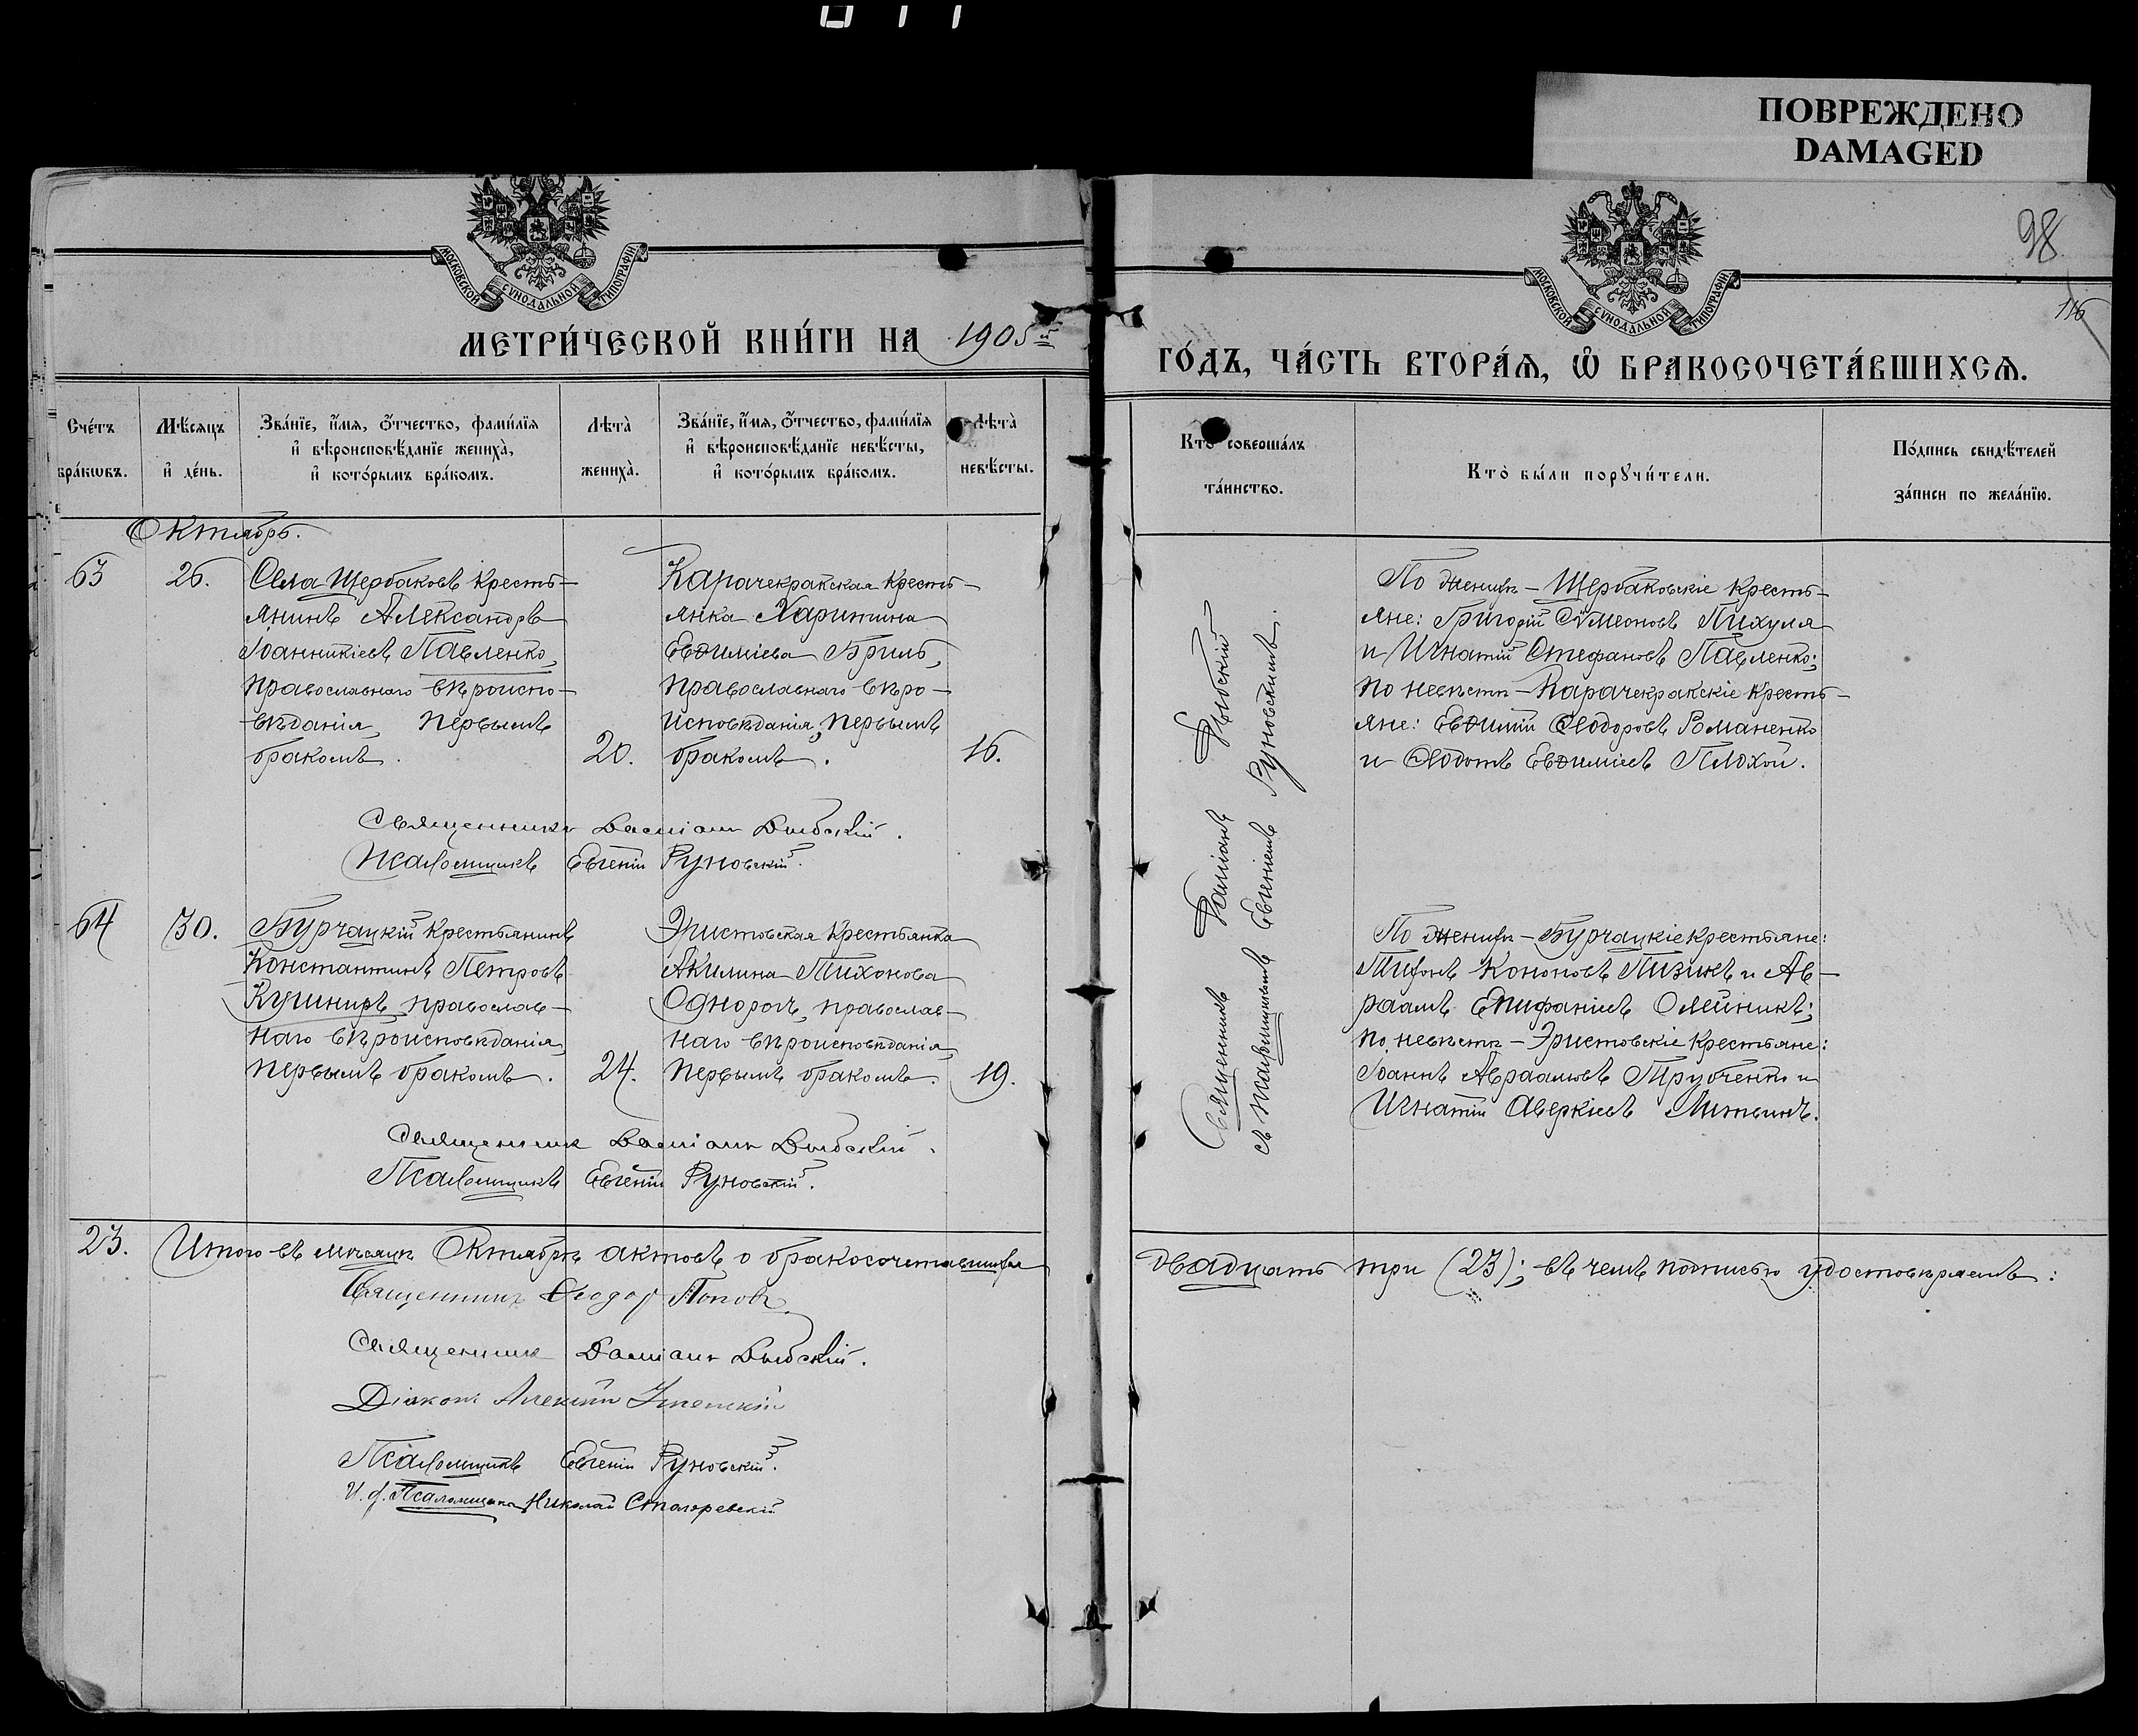 ПОВРЕЖДЕНО
DAMAGED
98
116
МОСКОВСКОЙ СѴНОДАЛЬНОЙ ТИПОГРАФІИ
МОСКОВСКОЙ СѴНОДАЛЬНОЙ ТИПОГРАФІИ
МЕТРИ́ЧЕСКОЙ КНИ́ГИ НА 1905
ГО́ДЪ, ЧА́СТЬ ВТОРА́Ѧ, Ѡ҆ БРАКОСОЧЕТА́ВШИХСѦ.
Сче́тъ бра́кѡвъ.
Мѣ́сѧцъ и҆ де́нь.
Зва́нїе, и҆́мѧ, ѻ҆́тчество, фами́лїѧ
и҆ вѣроисповѣ́данїе жениха̀,
и҆ кото́рымъ бра́комъ.
Лѣта̀ жениха̀.
Зва́нїе, и҆́мѧ, ѻ҆́тчество, фами́лїѧ
и҆ вѣроисповѣ́данїе невѣ́сты,
и҆ кото́рымъ бра́комъ.
Лѣта̀ невѣ́сты.
Кто̀ соверша́лъ
та́инство.
Кто̀ бы́ли порꙋчи́тели.
По́дпись свидѣ́телей
за́писи по жела́нїю.
Октябрь.
63
26.
Села Щербаковъ кресть-
янинъ Александръ
Іоанникіевъ Павленко,
православнаго вѣроиспо-
вѣданія, первымъ
бракомъ.
20.
Карачекракская кресть-
янка Харитина
Евѳиміева Бриль,
православнаго вѣро-
исповѣданія, первымъ
бракомъ.
16.
По женихѣ - Щербаковскіе кресть-
яне: Григорій Сѵмеоновъ Пихуля
и Игнатій Стефановъ Павленко;
по невѣстѣ - Карачекракскіе кресть-
яне: Евѳимій Ѳеодоровъ Романенко
и Ѳеодотъ Евѳиміевъ Плохой.
Священникъ Даміанъ Дыбскій.
Псаломщикъ Евгеній Руновскій.
Священникъ Даміанъ Дыбскій
съ псаломщикомъ Евгеніемъ Руновскимъ.
64
30.
Бурчацкій крестьянинъ
Константинъ Петровъ
Кушниръ, православ-
наго вѣроисповѣданія,
первымъ бракомъ.
24.
Эристовская крестьянка
Акилина Тихонова
Однорогъ, православ-
наго вѣроисповѣданія,
первымъ бракомъ.
19.
По женихѣ - Бурчацкіе крестьяне:
Кононовъ и Ав-
раамъ Епифаніевъ Олейникъ;
по невѣстѣ - Эристовскіе крестьяне:
Іоаннъ Авраамовъ Трубченко и
Игнатій Аверкіевъ Литвинъ.
Священникъ Даміанъ Дыбскій.
Псаломщикъ Евгеній Руновскій.
23.
Итого въ мѣсяцѣ Октябрѣ актовъ о бракосочетавшихся
двадцать три (23); въ чемъ подписью удостовѣряемъ:
Священникъ Ѳеодоръ Поповъ
Священникъ Даміанъ Дыбскій.
Діаконъ Алексій
Псаломщикъ Евгеній Руновскій.
И. д. Псаломщика Николай